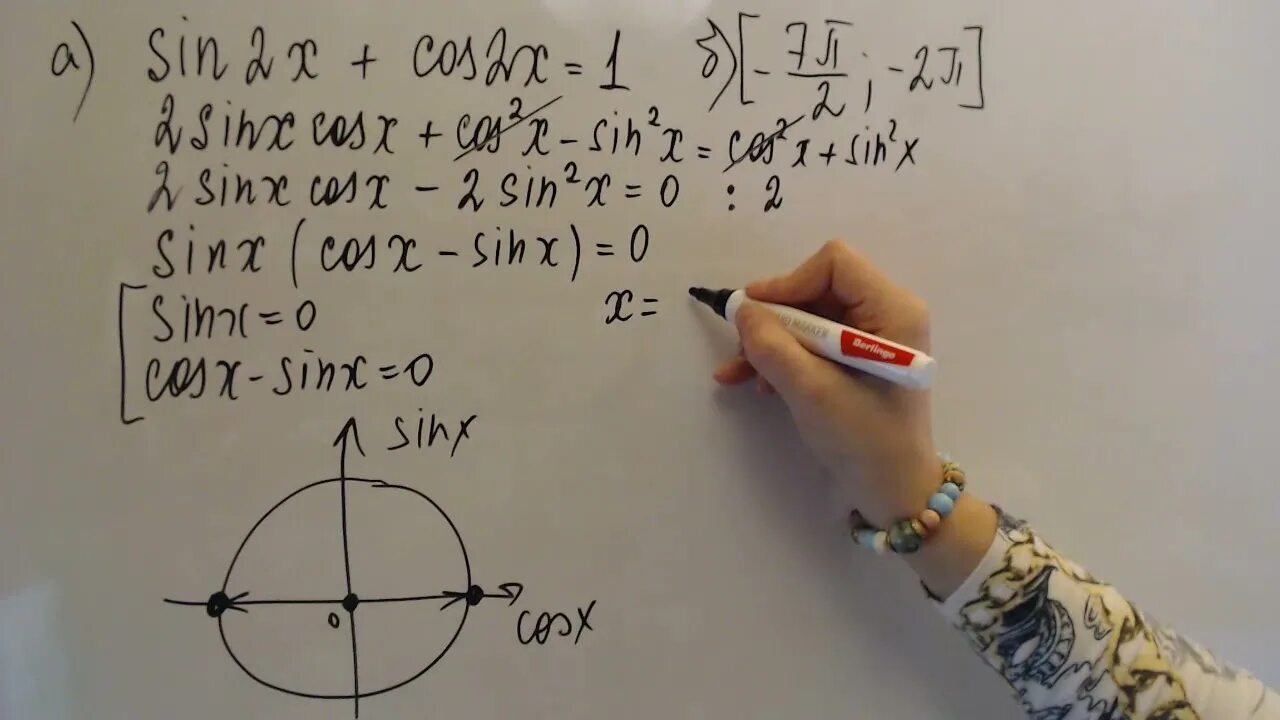 а) sin2x + cos2x = 1 б) [-7π/2; -2π]
2sinx cosx + cos²x - sin²x = cos²x + sin²x
2 sinx cosx - 2 sin²x = 0 : 2
sinx (cosx - sinx) = 0
sinx = 0 x =
cosx - sinx = 0
sinx
0
cosx
Berlingo